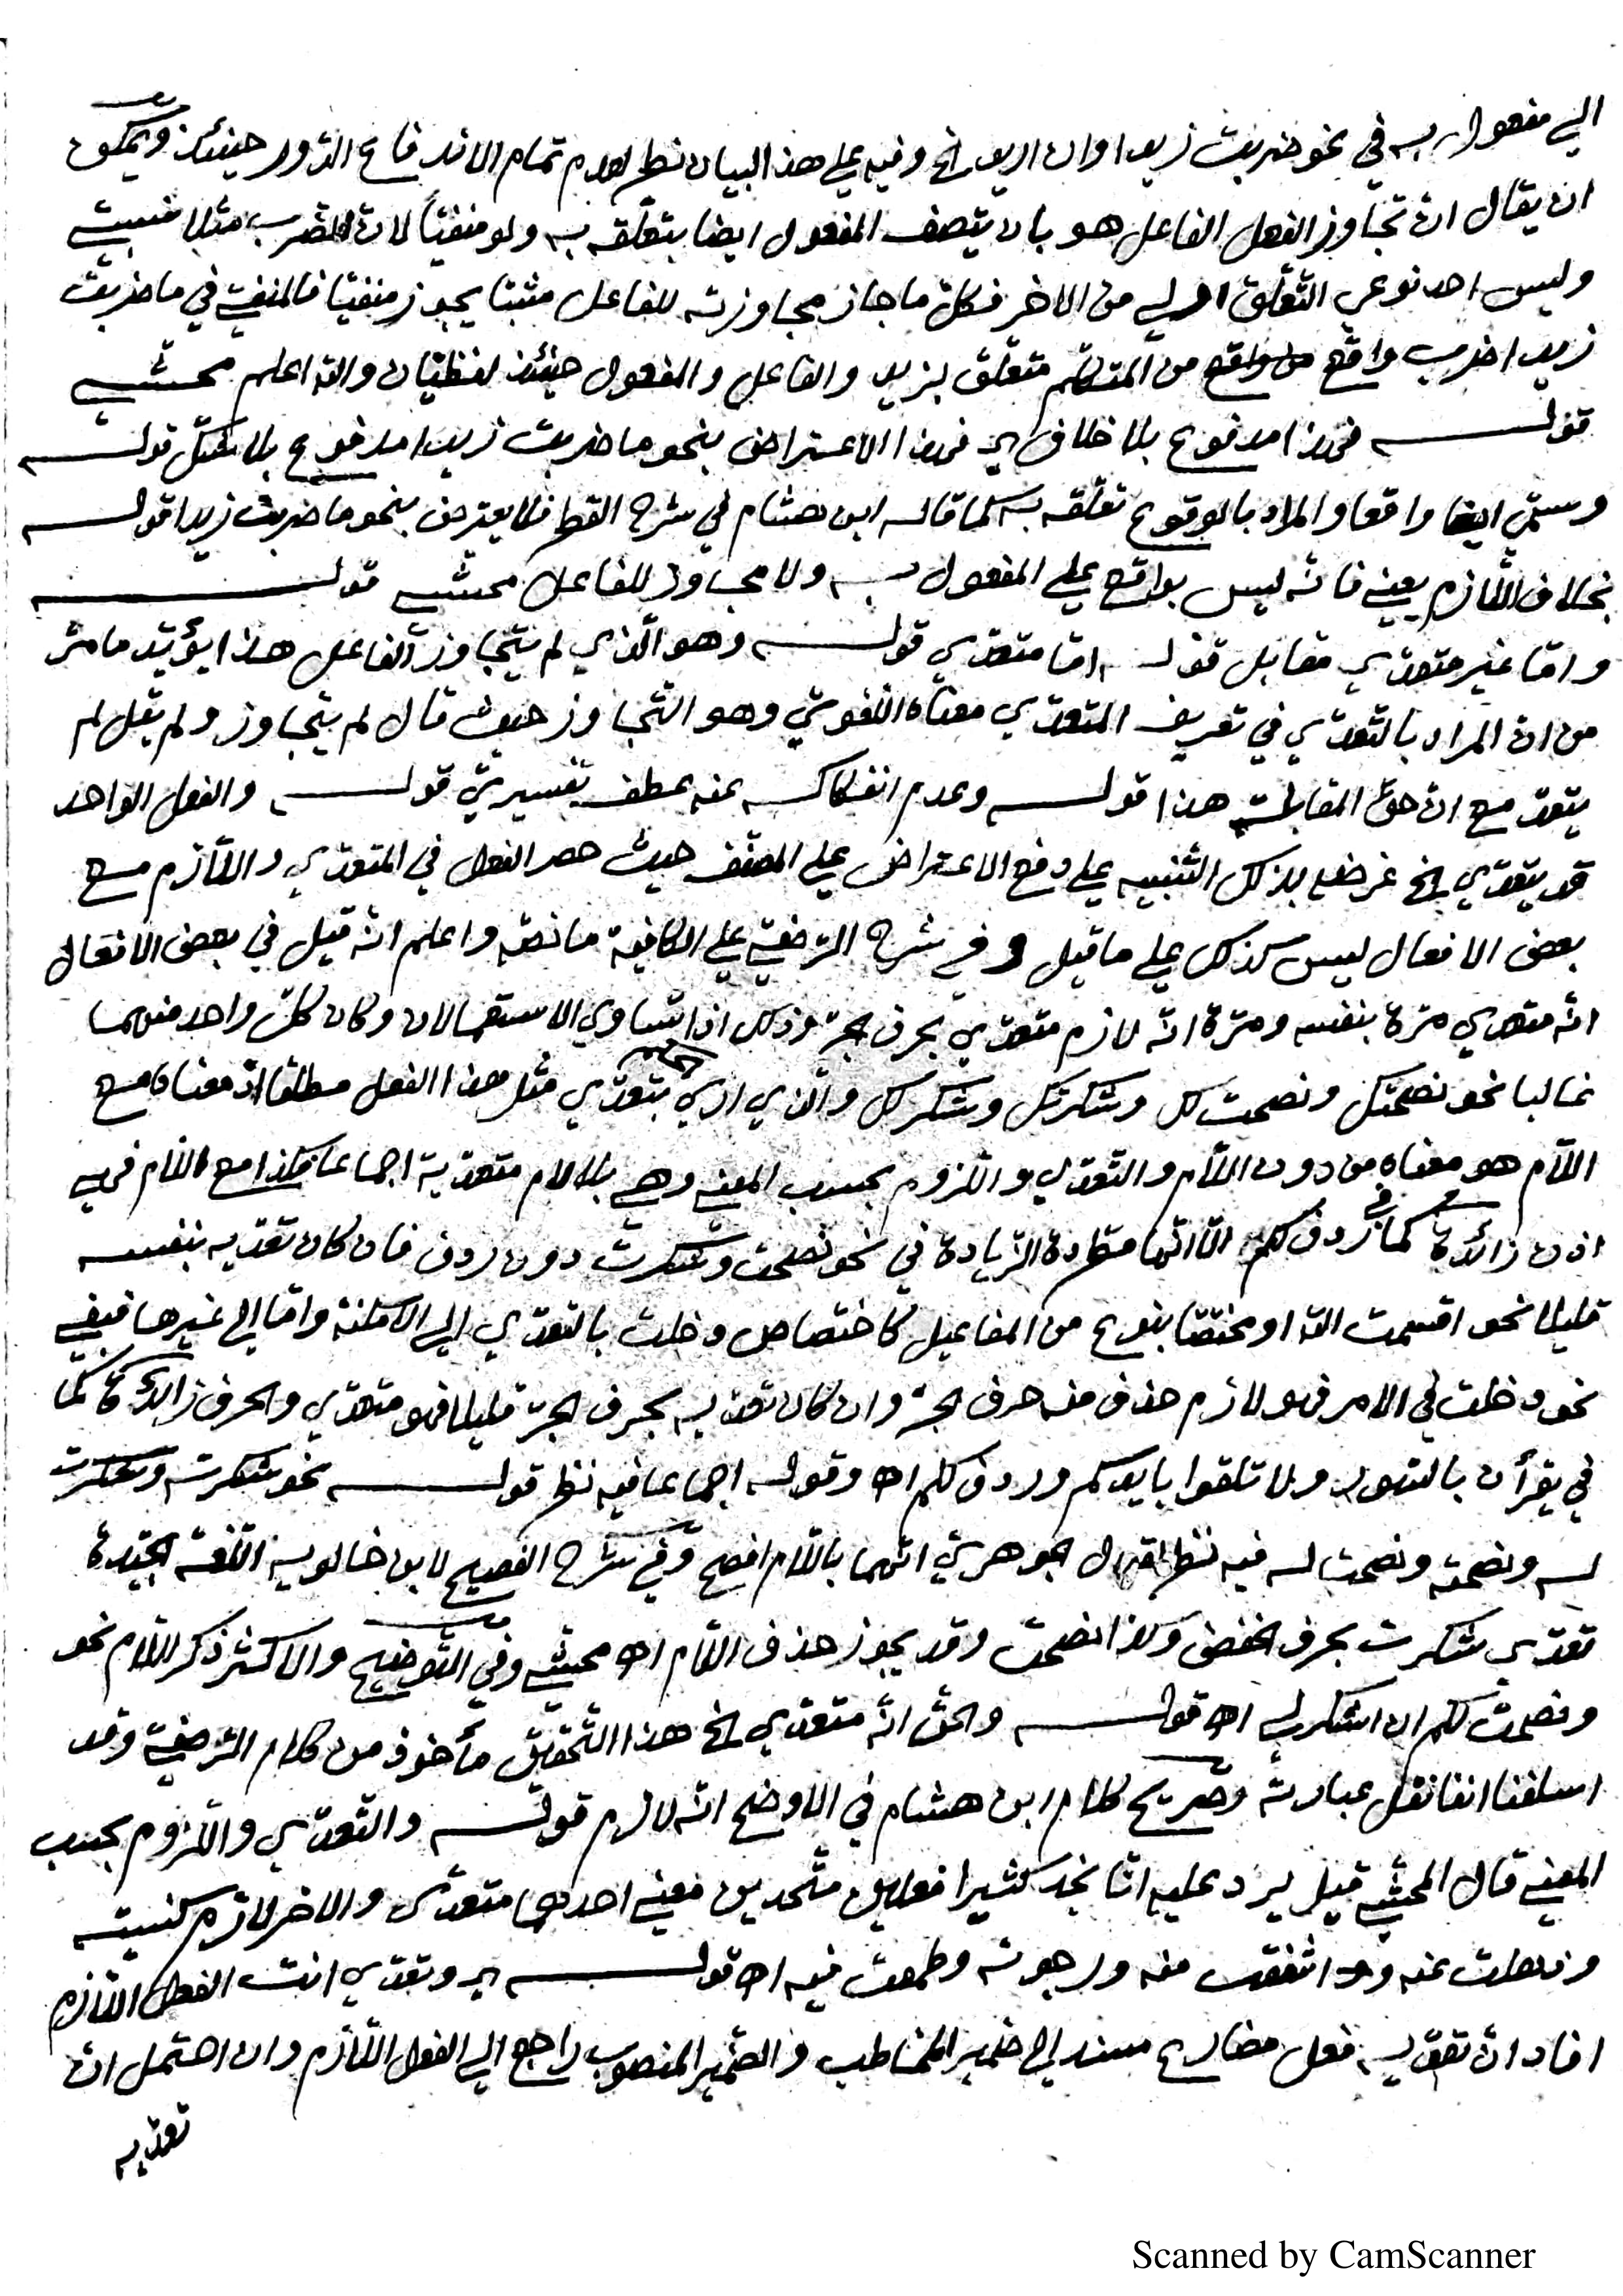 الي مفعول به في نحو ضربت زيدا وان اريد الخ وفيه علي هذا البيان نظر لعدم تمام الاندفاع الدّور حينئذ ويمكن
ان يقال انّ تجاوز الفعل الفاعل هو بان يتصف المفعول ايضا بتعلّقه به ولو منفيّاً لانّ الضرب مثلا نسبت
وليس احد نوعي التعلّق اولي من الاخر فكلّ ما جاز مجاوزته للفاعل مثبتا يجوز منفيّا فالمنفي في ما ضربت
زيدا ضرب واقع من المتكلّم متعلّق بزيد والفاعل والمفعول حينئذ لفظيّان والله اعلم محشّي
قوله فهذا مدفوع بلا خلاف اي فهذا الاعتراض بنحو ما ضربت زيدا مدفوع بلا شكّ قوله
وسمّي ايضا واقعا والمراد بالوقوع تعلّقه به كما قاله ابن هشام في شرح القطر فلا يعترض بنحو ما ضربت زيدا قوله
بخلاف اللّازم يعني فانّه ليس بواقع علي المفعول به ولا مجاوز للفاعل محشّي قوله
وامّا غير متعدّي مقابل قوله امّا متعدّي قوله وهو الّذي لم يتجاوز الفاعل هذا يؤيّد ما مرّ
من انّ المراد بالتّعدّي في تعريف المتعدّي معناه اللّغويّ وهو التّجاوز حيث قال لم يتجاوز ولم يقل لم
يتعدّ مع انّ حقّ المقابلة هذا قوله وعدم انفكاكه عنه عطف تفسيريّ قوله والفعل الواحد
قد يتعدّي الخ غرضه بذلك التّنبيه علي دفع الاعتراض علي المصنّف حيث حصر الفعل في المتعدّي واللّازم مع
بعض الافعال ليس كذلك علي ما قيل وفي شرح الرّضيّ علي الكافية ما نصّه واعلم انّه قيل في بعض الافعال
انّه متعدي مرّة بنفسه ومرّة انّه لازم متعدّي بحرف جرّ وذلك اذا تساوي الاستعمالان وكان كلّ واحد منهما
غالبا نحو نصحتك ونصحت لك وشكرتك وشكرت لك والّذي اري بتعدّي مثل هذا الفعل مطلقا اذ معناه مع
اللّام هو معناه من دون اللّام والتّعدّي واللّزوم بحسب المعني وهي بلا لام متعدّية اجماعا فكذا مع اللام فهي
اذن زائدة كما في ردف لكم الّا انّها مطّردة الزّيادة في نحو نصحت وشكرت دون ردف فان كان تعدّيه بنفسه
قليلا نحو اقسمت الله او مختصّا بنوع من المفاعيل كاختصاص دخلت بالتعدّي الي الامكنة وامّا الي غيرها فبفي
نحو دخلت في الامر فهو لازم حذف منه حرف الجرّ وان كان تعدّيه بحرف الجرّ قليلا فهو متعدّي والحرف زائدة كما
في يقرأن بالسّور ولا تلقوا بايديكم وردف لكم اه وقوله اجماعا فيه نظر قوله نحو شكرته وشكرت
له ونصحته ونصحت له فيه نظر لقول الجوهريّ انّهما باللّام افصح وفي شرح الفصيح لابن خالويه اللّغة الجيّدة
تعدّي شكرت بحرف الخفض وكذا نصحت وقد يجوز حذف اللّام اه محشّي وفي التّوضيح والاكثر ذكر اللّام نحو
ونصحت لكم ان اشكر لي اه قوله والحقّ انّه متعدّي الخ هذا التّحقيق مأخوذ من كلام الرّضيّ وقد
اسلفنا انفا نقل عبارته وصريح كلام ابن هشام في الاوضح انّه لازم قوله والتّعدّي واللّزوم بحسب
المعني قال المحشّي قيل يرد عليه انّا نجد كثيرا فعلين متّحدين معني احدهما متعدّي والاخر لازم كنسيته
وذهلت عنه واشفقت منه ورجوته وطمعت فيه اه قوله اي وتعدّي انت الفعل اللّازم
افاد انّ تعدّيه فعل مضارع مسند الي ضمير المخاطب والضّمير المنصوب راجع الي الفعل اللّازم وان احتمل انّ
تعدّيه
Scanned by CamScanner